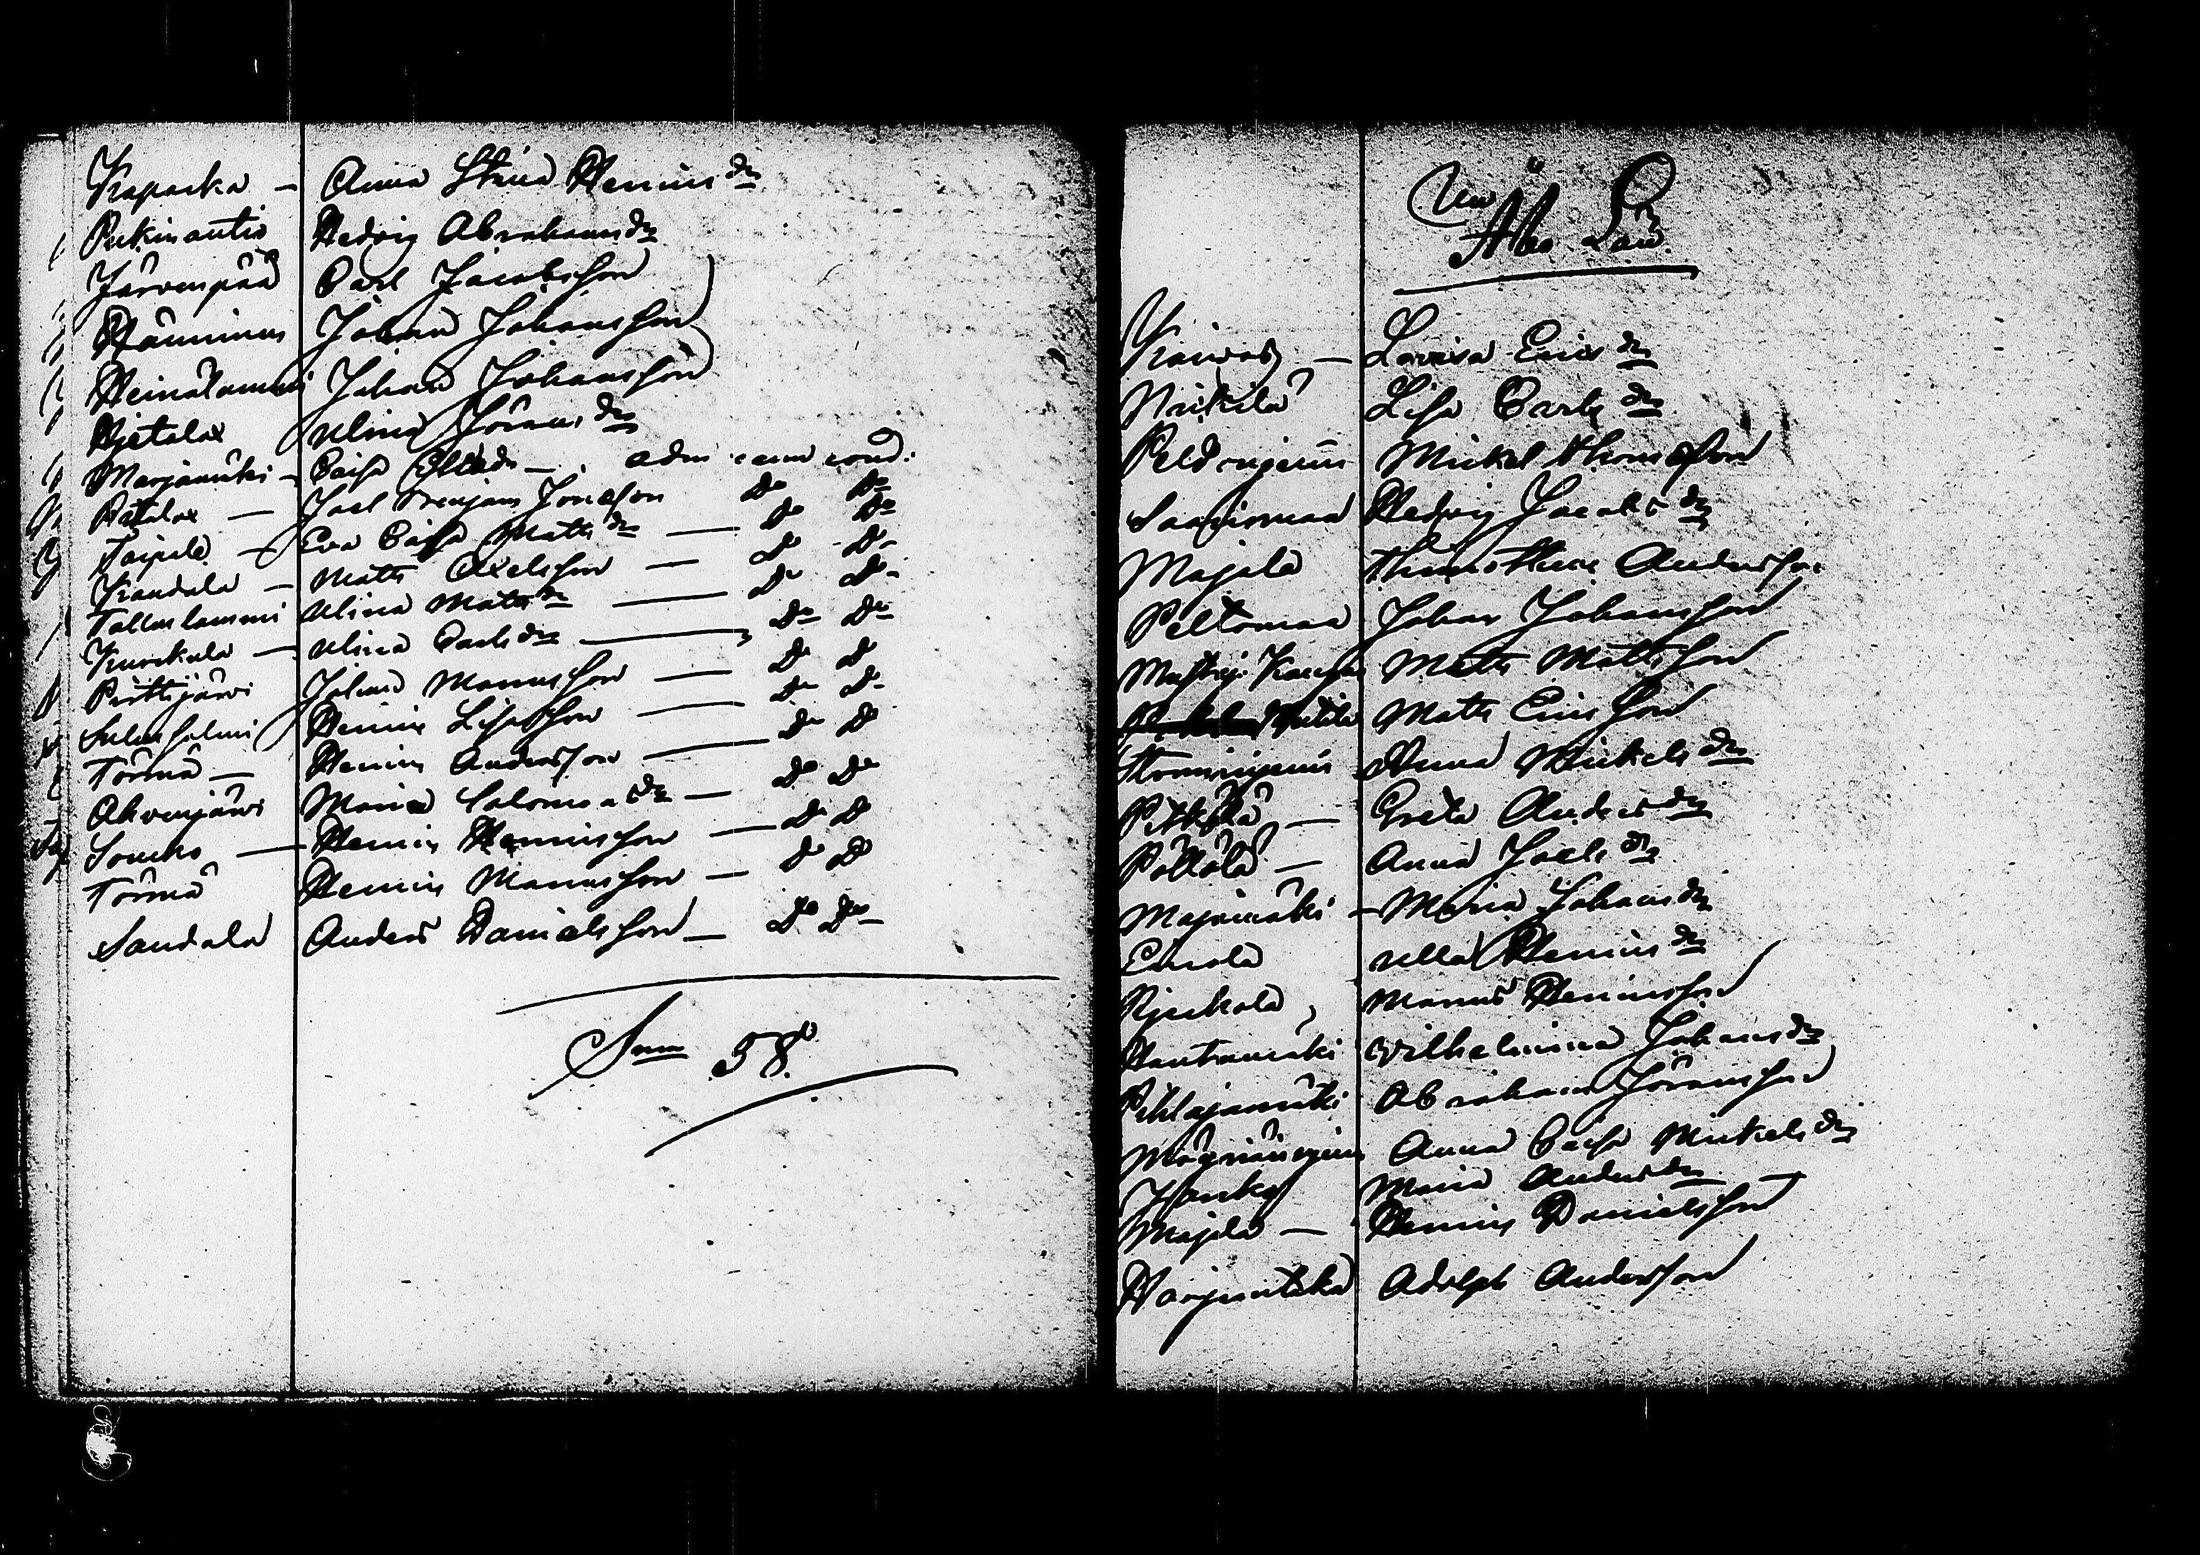 Kaparka - Anna Stina Henricsdr
Pukinautio Hedvig Abrahamsdr
Järvenpää Carl Jacobsson
Hänninen Johan Johansson
Heinälammi Johan Johansson
Hjetalax Ulrica Göransdr
Marjamäki - Caisa adm cum cond:
Hetalax - Joel Benjam Jonasson Do Do
Taipale - Eva Caisa Mattsdr - Do Do
Kandala - Matts Axelsson - Do Do
Tallus lammi Ulrica Matsdr - Do Do
Kurkula - Ulrica Carlsdr - Do Do
Pirttijärvi Johan Manusson - Do Do
Salus salmi Henric - Do Do
Törmä - Henric Andersson - Do Do
Ahvenjärvi Maria Salomonsdr - Do Do
Soucko - Henric Henricsson - Do Do
Törmä Henric Manusson - Do Do
Sandala Anders Danielsson - Do Do
Sum 58
Åbo Län
Lovisa Ericsdr
Nickilä Lisa Carlsdr
Mickel Thomasson
Saarismaa Hedvig Jacobsdr
Majala Thimotheus Andersson
Peltomaa Johan Johansson
Matts Mattsson
Matts Ericsson
Anna Mickelsdr
Pitkälä - Greta Andersdr
Pöllölä - Anna Joelsdr
Majamäki - Maria Johansdr
Eurola Ulla Henricsdr
Manus Henricsson
Hautamäki Wilhelmina Johansdr
Pihlajamäki Abraham Göransson
Anna Caisa Mickelsdr
Maria Andersdr
Majala - Henric Danielsson
Adolph Andersson